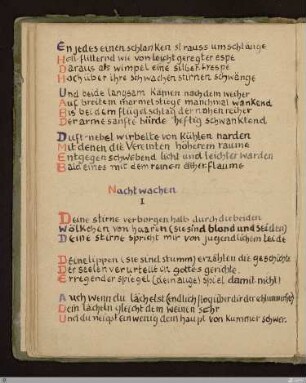 En jedes einen schlanken strauss umschlänge
Hell flitternd wie von leicht geregter espe
Daraus als wimpel eine silber-trespe
Hoch über ihre schwachen stirnen schwänge

Und beide langsam kamen nach dem weiher
Auf breitem marmelstiege manchmal wankend
Bis bei dem flügelschlag der nahen reiher
Der arme sanfte bürde heftig schwankend

Duft-nebel wirbelte von kühlen narden
Mit denen die Vereinten höherem raume
Entgegen schwebend licht und leichter warden
Bald eines mit dem reinen ätherflaume

Nachtwachen
I

Deine stirne verborgen halb durch die beiden
Wölkchen von haaren (sie sind blond und seiden)
Deine stirne spricht mir von jugendlichem leide

Deine lippen (sie sind stumm) erzählen die geschichte
Der seelen verurteilt in gottes gerichte.
Erregender spiegel (dein auge) spiel damit nicht!

Auch wenn du lächelst (endlich flog über dir der schlummer)
Dein lächeln gleicht dem weinen sehr
Und du neigst ein wenig dein haupt von kummer schwer.